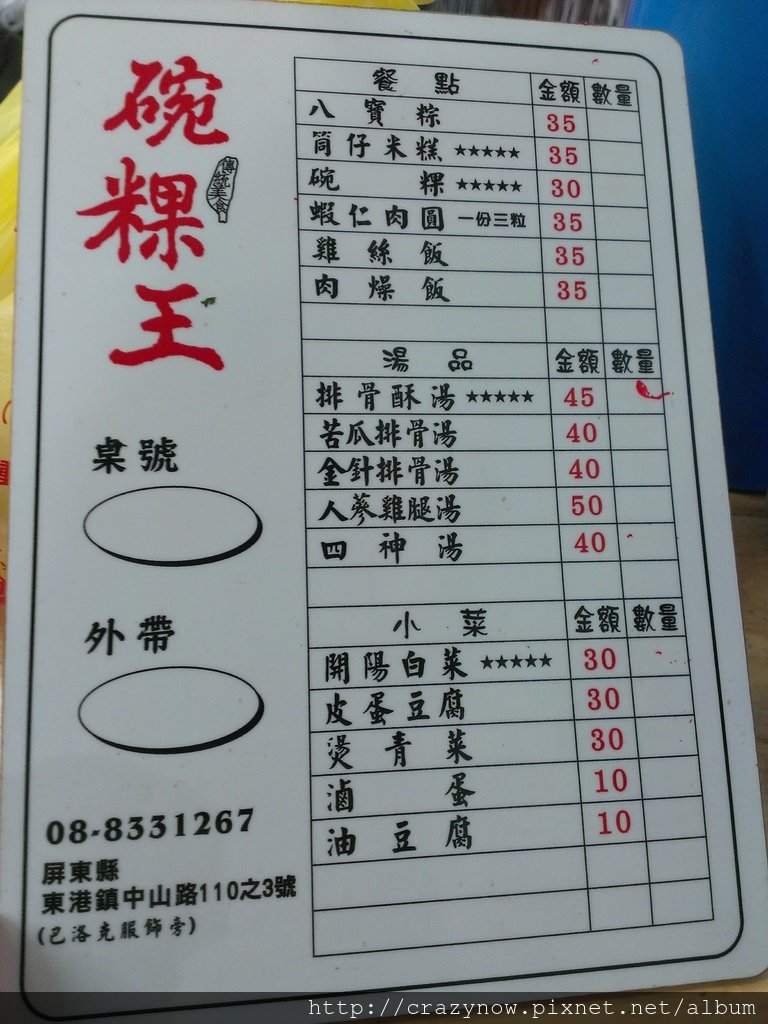 碗粿王
傳統美食
桌號
外帶
08-8331267
屏東縣
東港鎮中山路110之3號
(巴洛克服飾旁)
餐點 金額 數量
八寶粽 35
筒仔米糕★★★★★ 35
碗粿★★★★★ 30
蝦仁肉圓 一份三粒 35
雞絲飯 35
肉燥飯 35
湯品 金額 數量
排骨酥湯★★★★★ 45
苦瓜排骨湯 40
金針排骨湯 40
人蔘雞腿湯 50
四神湯 40
小菜 金額 數量
開陽白菜★★★★★ 30
皮蛋豆腐 30
燙青菜 30
滷蛋 10
油豆腐 10
http://crazynow.pixnet.net/album